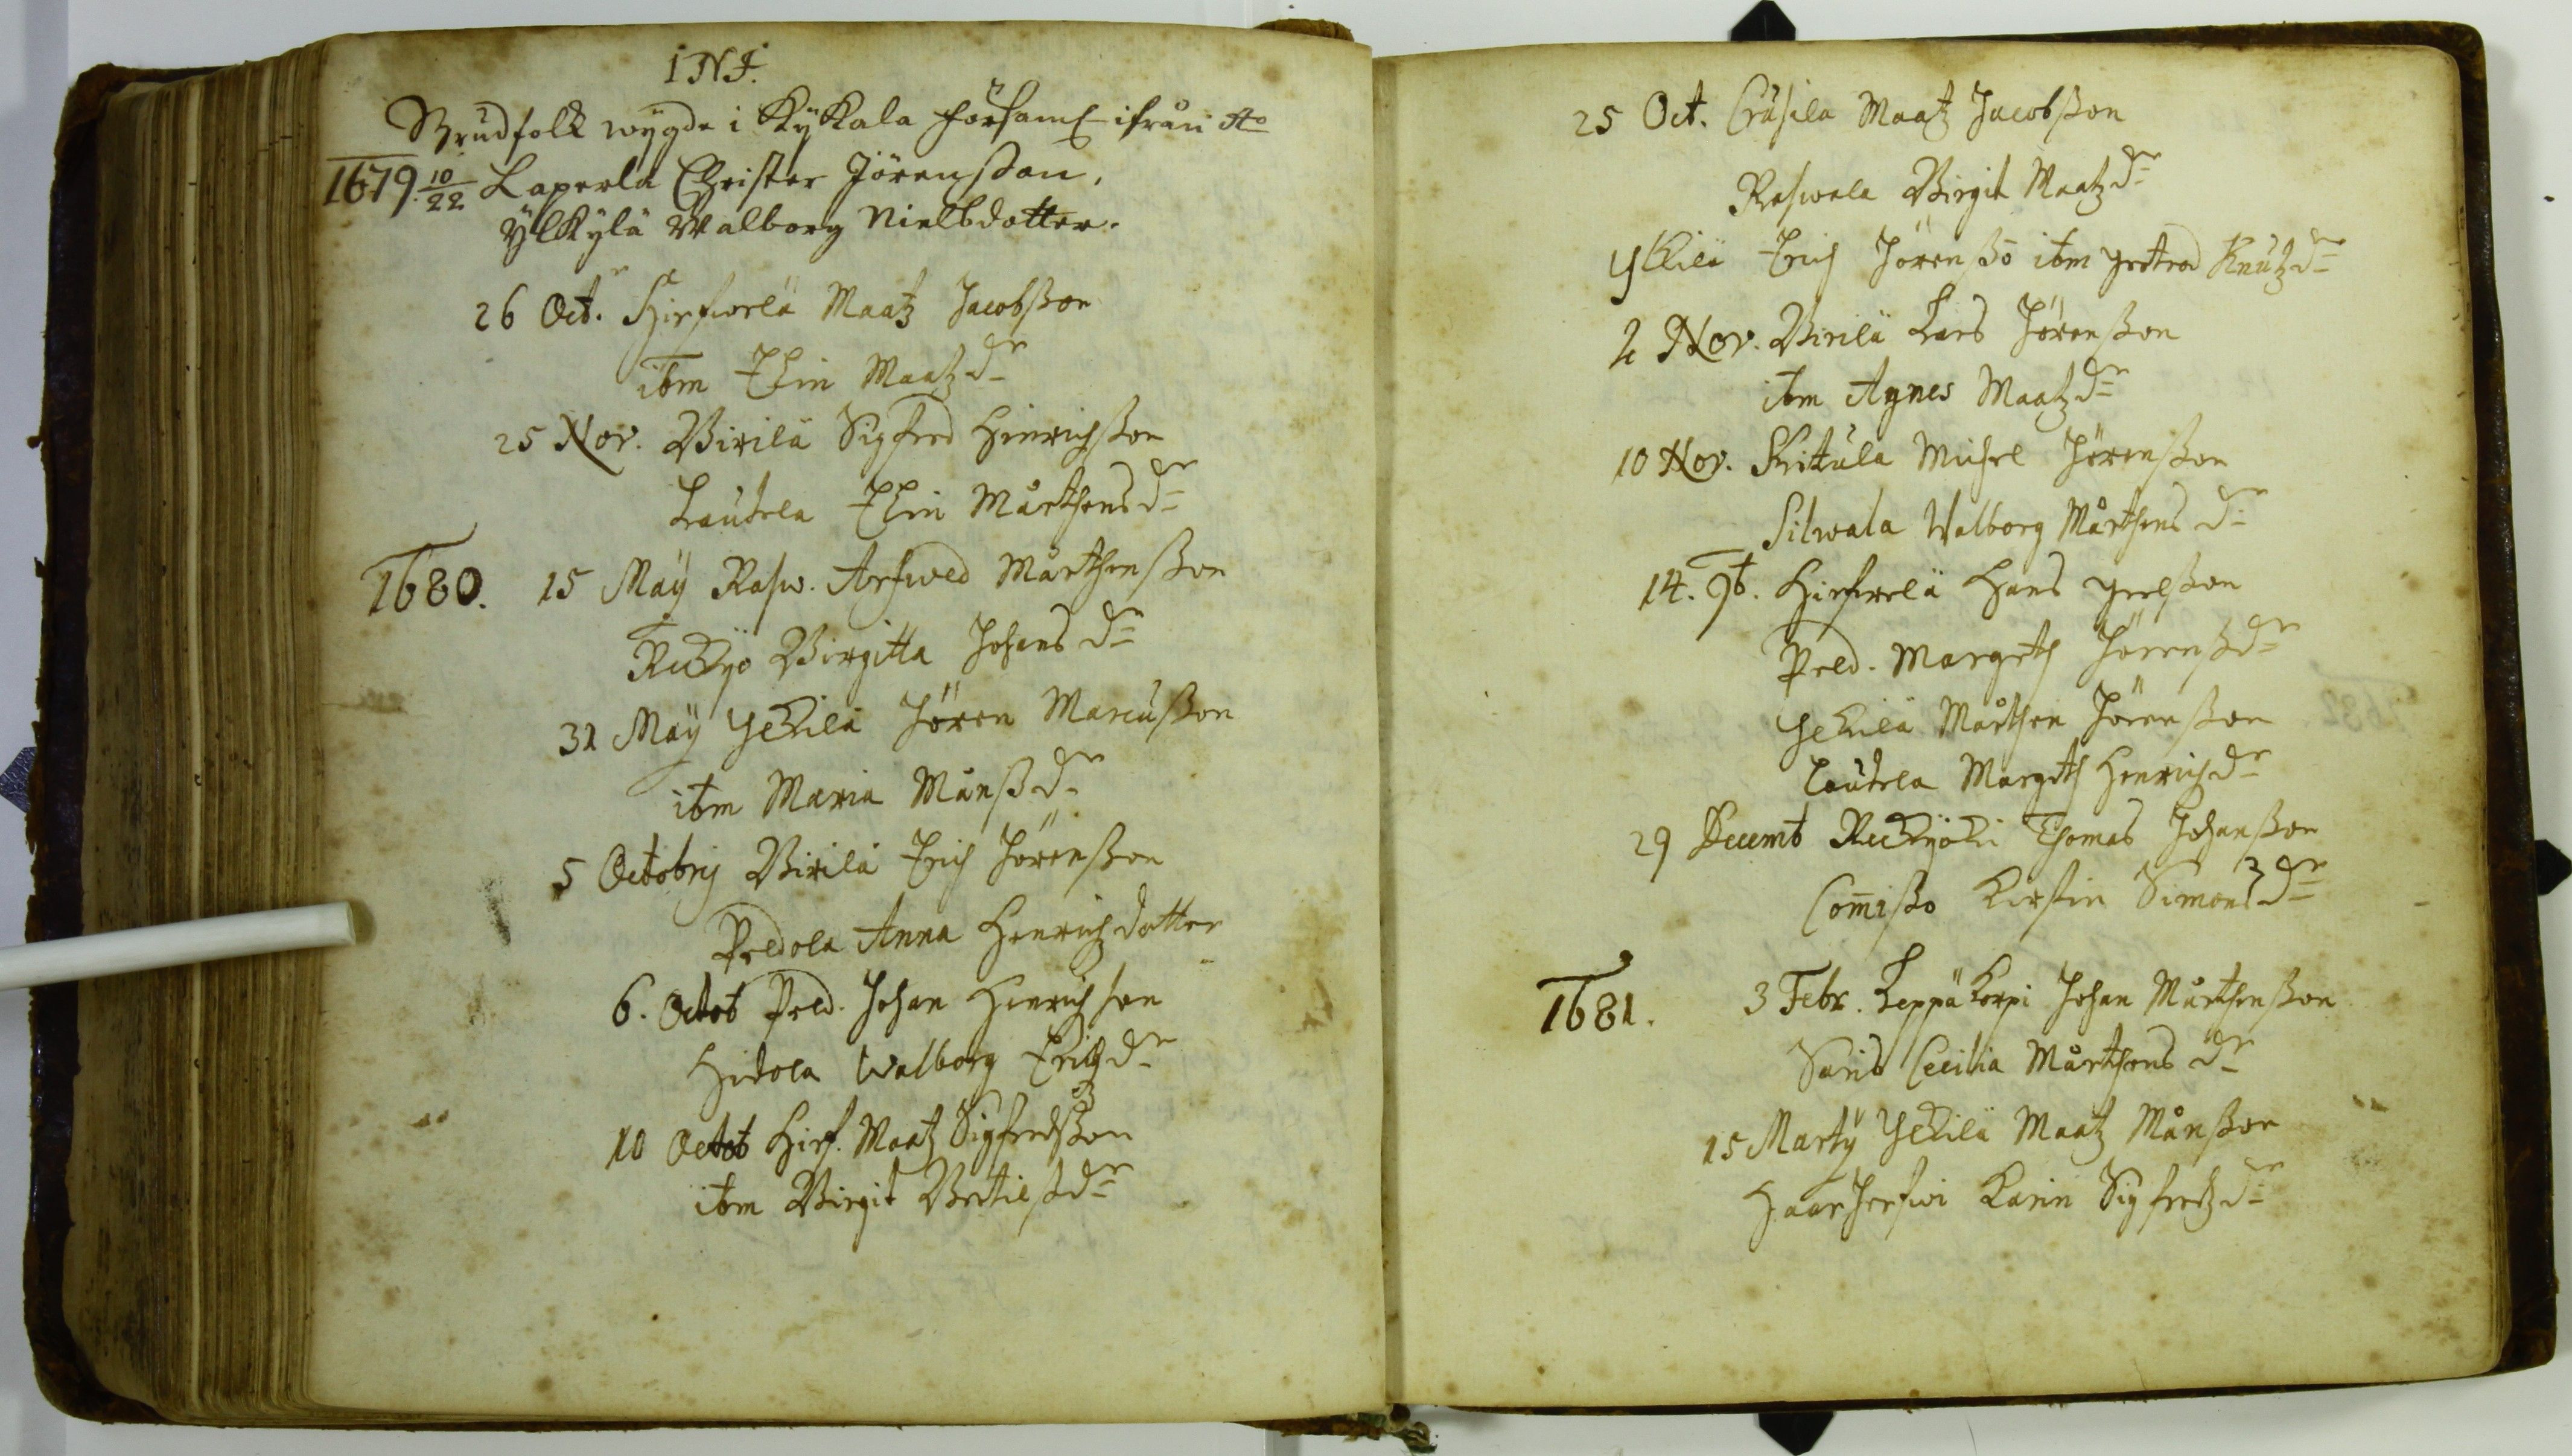 I N J.
Brudfolk wygde i Kykala församl ifrån Ao
1679. 10/22 Laperla Christer Jörensson.
Ylkylä Walborg Nielsdotter.
26 Oct. Hirfwelä Maatz Jacobsson
ibm Elin Maatzdr
25 Nov. Wirilä Sigfred Hinrichsson
Lautela Elin Mårthensdr
1680. 15 Maÿ Rasw. Arfwed Mårthensson
Birgitta Johansdr
31 Maÿ Yckilä Jören Marcusson
ibm Maria Månssdr
5 Octobrij Wirilä Erich Jörensson
Peldola Anna Henrichzdotter
6. Octob Peld. Johan Henrichson
Hidola Walborg Erichzdr
10 Octob Hirf. Maatz Sigfredsson
ibm Birgit Bertilssdr
25 Oct. Cråsila Maatz Jacobsson
Raswala Birgit Maatzdr
Yllilä Erich Jörensso ibm Knutzdr
2 Nov. Wirilä Lars Jörensson
ibm Agnes Maatzdr
10 Nov. Kritula Michel Jörensson
Silwala Walborg Mårthensdr
14. 9b. Hirfwelä Hans
Peld. Margeth Jörenssdr
Yckilä Mårthen Jörensson
Lautela Margeth Henrichdr
29 Decemb Thomas Johansson
Comisso Kirstin Simonsdr
1681. 3 Febr. Leppäkorpi Johan Mårthensson
Saris Cecilia Mårthensdr
15 Martij Yckilä Maatz Månsson
Haarjerfwi Karin Sigfredzdr